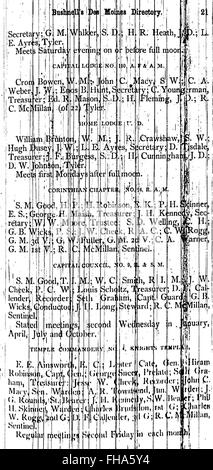 Bushnell's Des Moines Directory. 21
Secretary; G. M. Whiker, S. D.; H. R. Heath, J. D.; L.
E. Ayres, Tyler.
Meets Saturday evening on or before full moon.
CAPITAL LODGE NO. 110, A. F. & A. M.
Crom Bowen, W. M.; John C. Macy, S. W.; C. A.
Weber, J. W.; Enos B. Hunt, Secretary; C. Youngerman,
Treasurer; Ed. R. Mason, S. D.; H. Fleming, J. D.; R.
C. McMillan, (of 22) Tyler.
HOME LODGE U. D.
William Brinton, W. M.; J. R. Crawshaw, S. W.;
Hugh Dusey, J. W.; L. E. Ayres, Secretary; D. Tisdale,
Treasurer; J. F. Burgess, S. D.; H. Cunningham, J. D.;
D. W. Johnson, Tyler.
Meets first Mondays after full moon.
CORINTHIAN CHAPTER, NO. 14, R. A. M.
S. M. Good, H. P.; H. Robinson, E. K.; P. H. Skinner,
E. S.; George H. Mason, Treasurer; J. H. Kennedy, Sec-
retary; W. W. Moore, Trustee; S. D. Walling, C. H.;
G. B. Wicks, P. S.; W. Cheek, R. A. C.; C. W. Rogg,
G. M. 3d V.; G. W. Fuller, G. M. 2d V.; C. A. Warner,
G. M. 1st V.; R. C. McMillan, Sentinel.
CAPITAL COUNCIL, NO. 9, R. & S. M.
S. M. Good, T. I. M.; W. C. Smith, R. I. M.; J. W.
Cheek, P. C. W.; Louis Scholtz, Treasurer; D. F. Cal-
lender, Recorder; Seth Graham, Capt. Guard; G. B.
Wicks, Conductor; J. H. Long, Steward; R. C. McMillan,
Sentinel.
Stated meetings, second Wednesday in January,
April, July and October.
TEMPLE COMMANDERY NO. 4, KNIGHTS TEMPLAR.
E. E. Ainsworth, E. C.; Lester Cate, Gen.; Hiram
Robinson, Capt. Gen.; George Sneer, Prelate; Seth Gra-
ham, Treasurer; Jesse W. Cheek, Recorder; John C.
Macy, Sen. Warden; A. R. Townsend, Jun. Warden; J.
G. Rounds, St. Bearer; J. H. Kennedy, S.W. Bearer; Phil
H. Skinner, Warder; Charles Brunston, 1st G.; Charles
W. Rogg, 2nd G.; D. F. Callender, 3d G.; R. C. McMillan,
Sentinel.
Regular meetings Second Friday in each month.
alamy
www.alamy.com
FHA5Y4